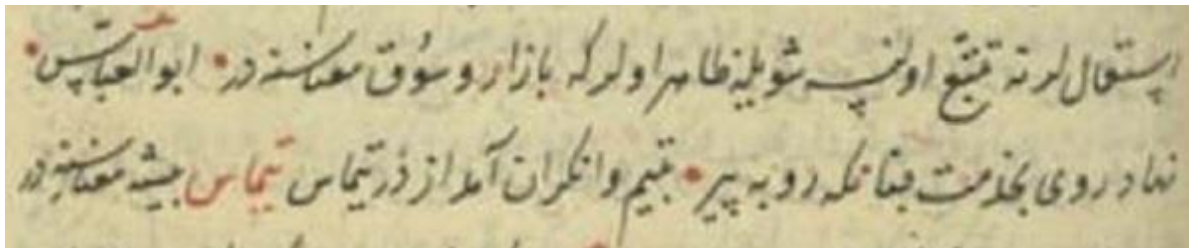 استعمال لرنه تتبع اولنسه شویله ظاهر اولر که بازار و سوق معناسنه در • ابو العباس •
نهاد روی بخدمت چنانکه روبه پیر • بتیم وانکران آمد از در تیماس تیماس بیشه معناسنه در